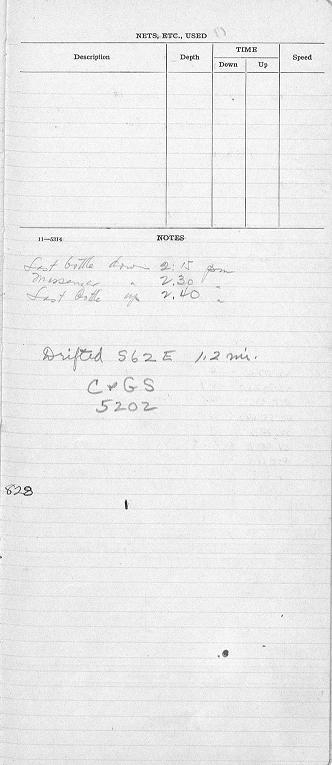 NETS, ETC., USED
Description Depth TIME Speed
Down Up
11—5314 NOTES
Last bottle down 2:15 pm
Messenger " 2.30 "
Last bottle up 2.40 "
Drifted S62E 1.2 mi.
C & G S
5202
828